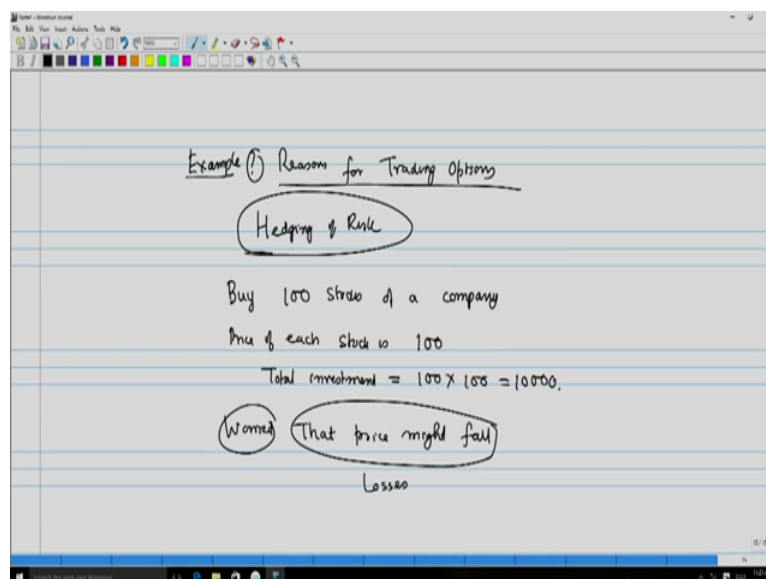 Note1 - Windows Journal
File Edit View Insert Actions Tools Help
B I
Example ① Reasons for Trading Options
Hedging of Risk
Buy 100 Stocks of a company
Price of each stock is 100
Total investment = 100 × 100 = 10000.
Worried That price might fall
Losses